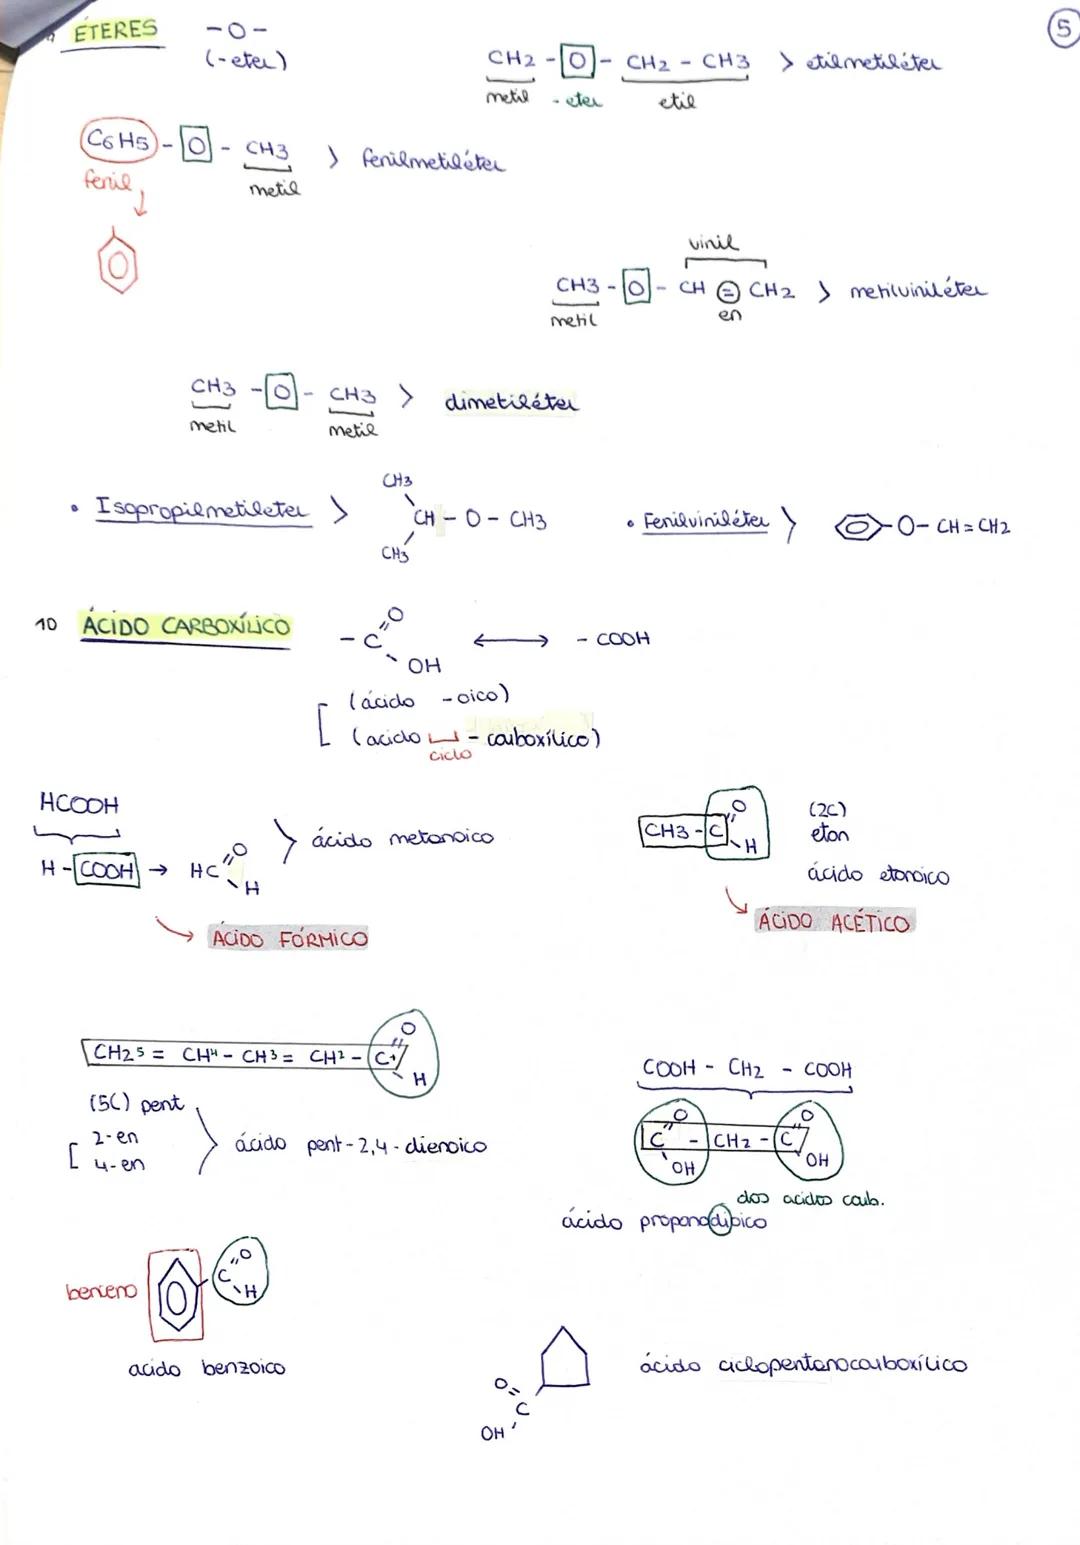 ÉTERES -O-
(-eter)
5
CH2 - O - CH2 - CH3 > etilmetiléter
metil - eter etil
C6H5 - O - CH3 > fenilmetiléter
fenil metil
vinil
CH3 - O - CH = CH2 > metilviniléter
metil en
CH3 - O - CH3 > dimetiléter
metil metil
• Isopropilmetileter >
CH3
CH - O - CH3
CH3
• Fenilviniléter > O - CH = CH2
10 ÁCIDO CARBOXÍLICO
O
- C ⟷ - COOH
OH
(ácido -oico)
(acido - carboxílico)
ciclo
HCOOH
H - COOH → HC
O
H
> ácido metanoico
ÁCIDO FÓRMICO
O
CH3 - C
H
(2C)
etan
ácido etanoico
ÁCIDO ACÉTICO
O
CH2⁵ = CH⁴ - CH³ = CH² - C¹
H
(5C) pent
2-en
4-en
> ácido pent-2,4-dienoico
COOH - CH2 - COOH
O O
C - CH2 - C
OH OH
dos acidos carb.
ácido propanodioico
benceno
O
C
H
acido benzoico
O
C
OH
ácido ciclopentanocarboxílico